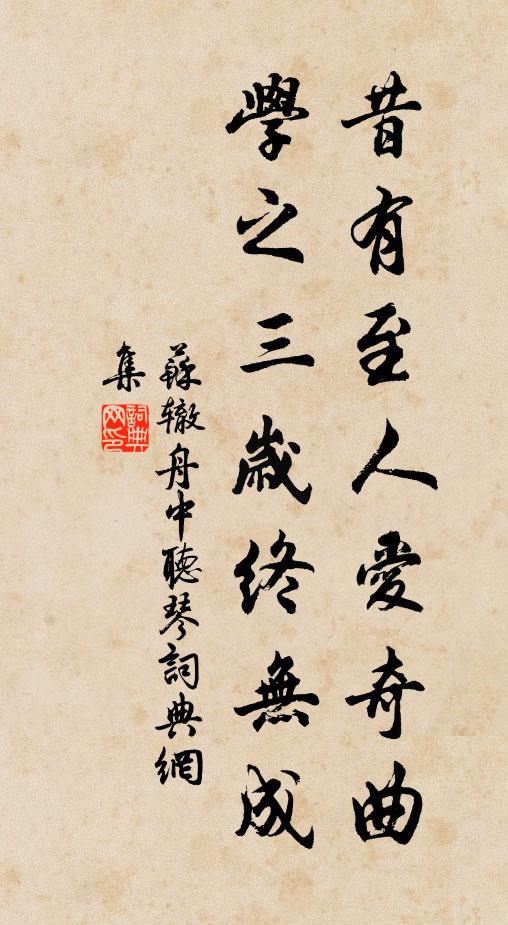 昔有至人愛奇曲
學之三歲終無成
蘇轍舟中聽琴詞典網
集
詞典
网印